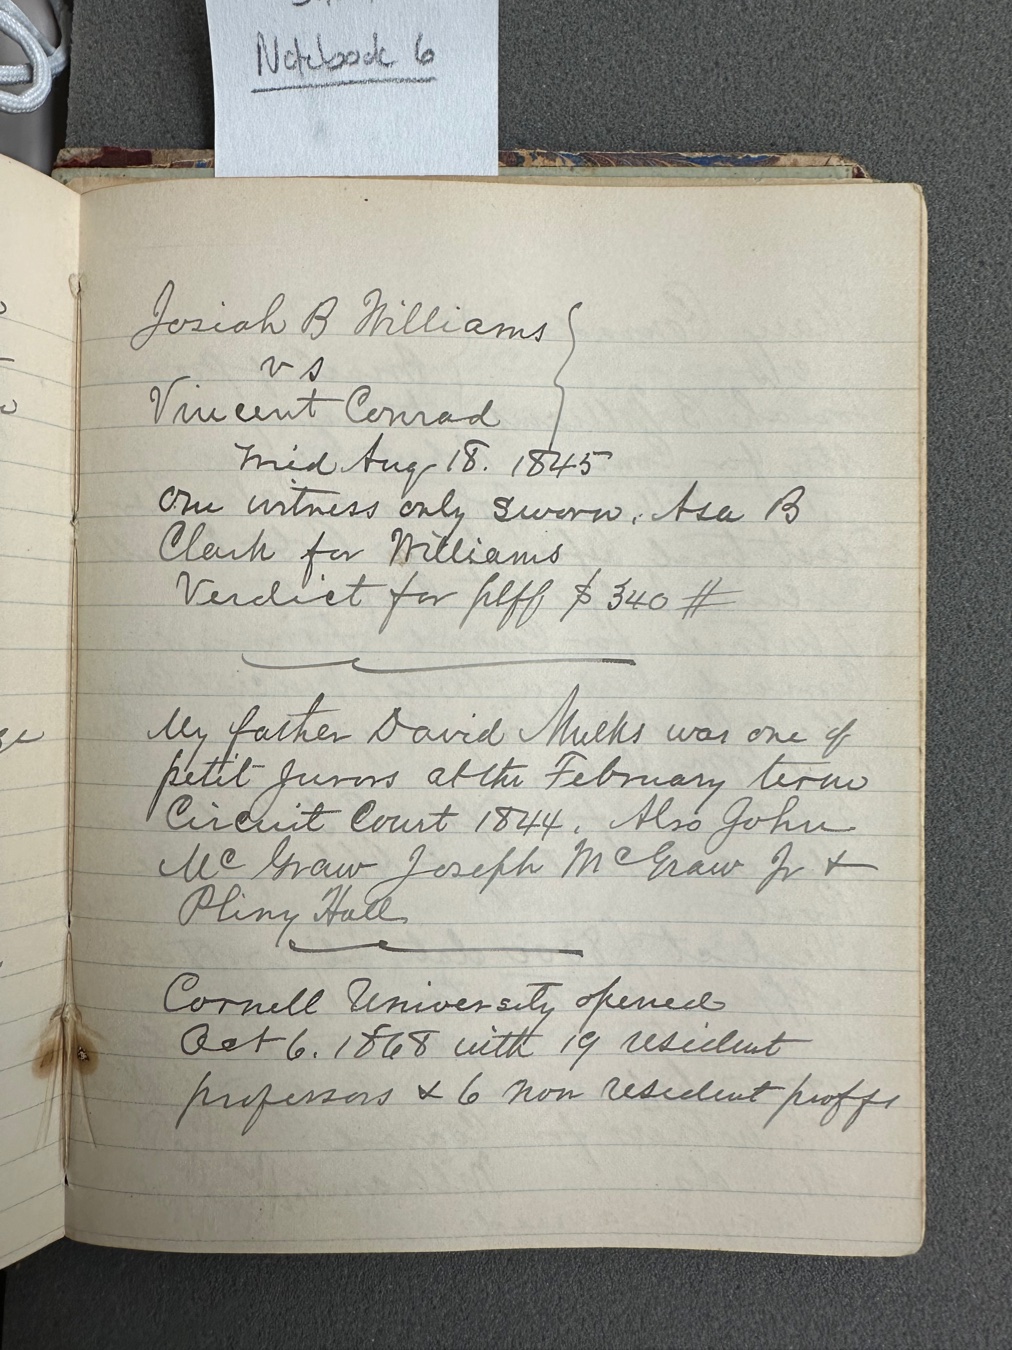 Notebook 6
Josiah B Williams
vs
Vincent Conrad
Aug 18. 1845
One witness only sworn. Asa B
Clark for Williams
Verdict for plff $ 340 #
My father David Mulks was one of
petit Jurors at the February term
Circuit Court 1844. Also John
McGraw Joseph McGraw Jr &
Pliny Hall
Cornell University opened
Oct 6. 1868 with 19 resident
professors & 6 non resident proffs